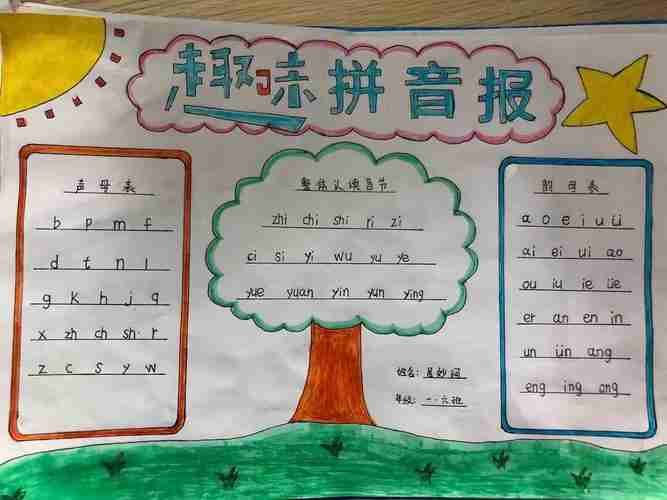 趣味拼音报
声母表
b p m f
d t n l
g k h j q
x zh ch sh r
z c s y w
整体认读音节
zhi chi shi ri zi
ci si yi wu yu ye
yue yuan yin yun ying
姓名:
年级: 一·六班
韵母表
a o e i u ü
ai ei ui ao
ou iu ie üe
er an en in
un ün ang
eng ing ong